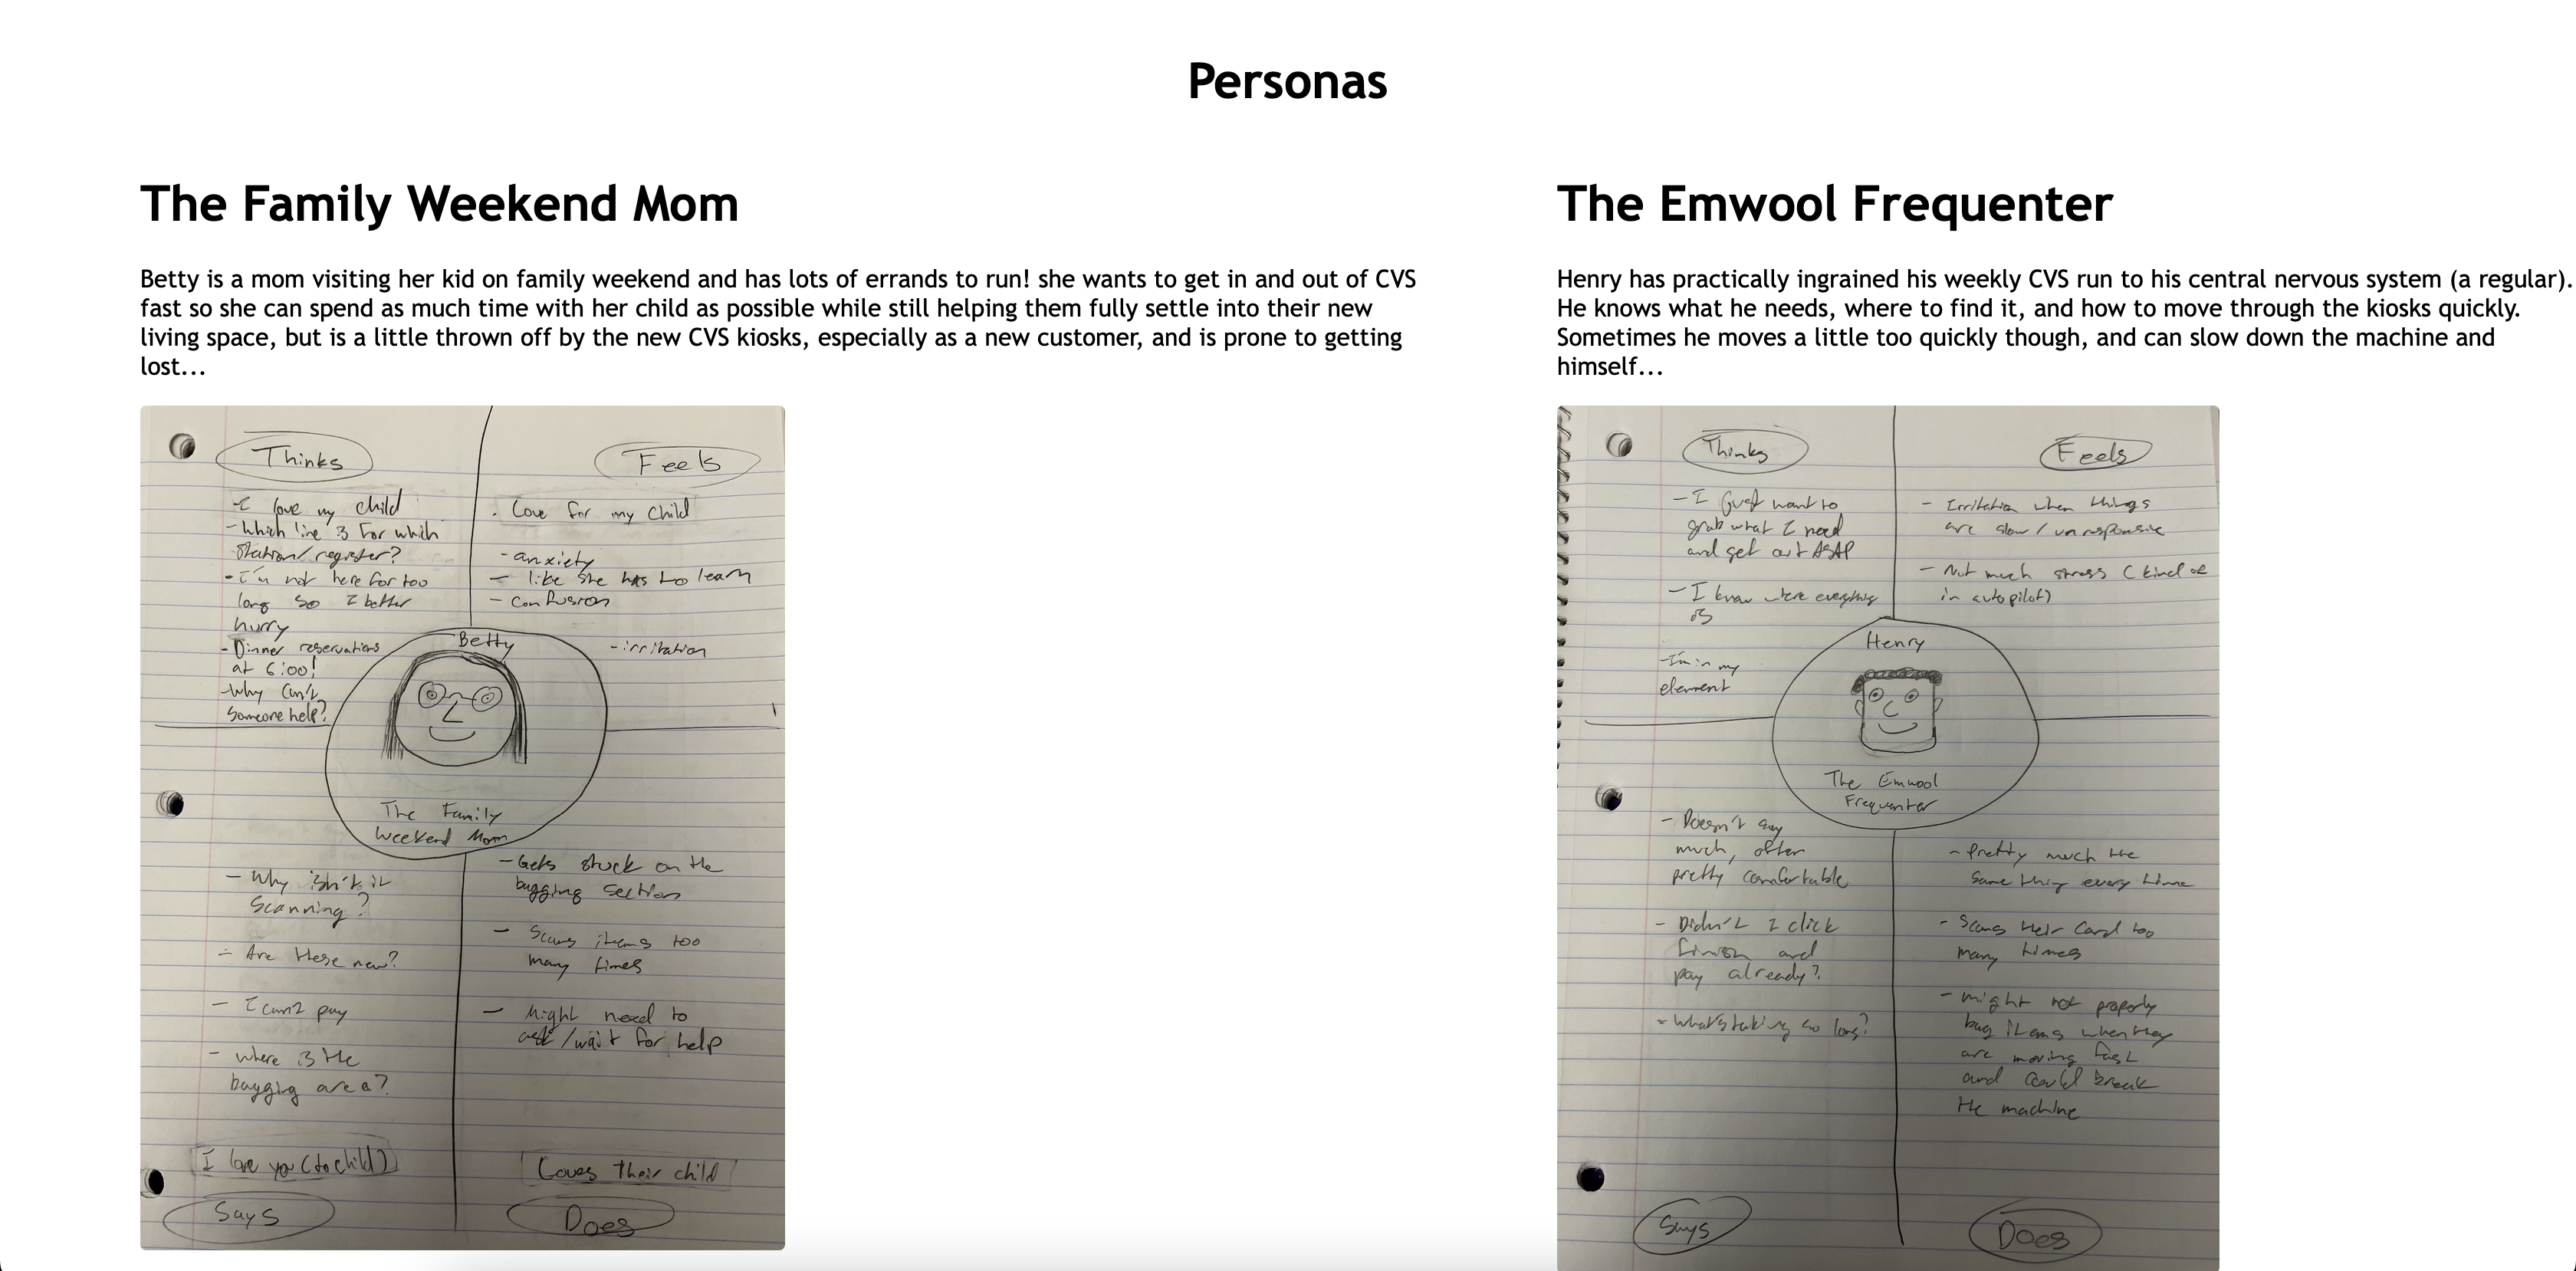 Personas
The Family Weekend Mom
Betty is a mom visiting her kid on family weekend and has lots of errands to run! she wants to get in and out of CVS
fast so she can spend as much time with her child as possible while still helping them fully settle into their new
living space, but is a little thrown off by the new CVS kiosks, especially as a new customer, and is prone to getting
lost...
Thinks
- I love my child
- Which line is for which
station/register?
- I'm not here for too
long so I better
hurry
- Dinner reservations
at 6:00!
- Why can't
someone help?
Feels
. Love for my child
- anxiety
- like she has to learn
- confusion
- irritation
Betty
The Family
Weekend Mom
- Why isn't it
scanning?
- Are these new?
- I can't pay
- where is the
bagging area?
I love you (to child)
Says
- Gets stuck on the
bagging section
- Scans items too
many times
- Might need to
ask/wait for help
Loves their child
Does
The Emwool Frequenter
Henry has practically ingrained his weekly CVS run to his central nervous system (a regular).
He knows what he needs, where to find it, and how to move through the kiosks quickly.
Sometimes he moves a little too quickly though, and can slow down the machine and
himself...
Thinks
- I just want to
grab what I need
and get out ASAP
- I know where everything
is
- I'm in my
element
Feels
- Irritation when things
are slow/unresponsive
- Not much stress (kind of
in autopilot)
Henry
The Emwool
Frequenter
- Doesn't say
much, often
pretty comfortable
- Didn't I click
finish and
pay already?
- What's taking so long?
Says
- Pretty much the
same thing every time
- Scans their card too
many times
- might not properly
bag items when they
are moving fast
and could break
the machine
Does